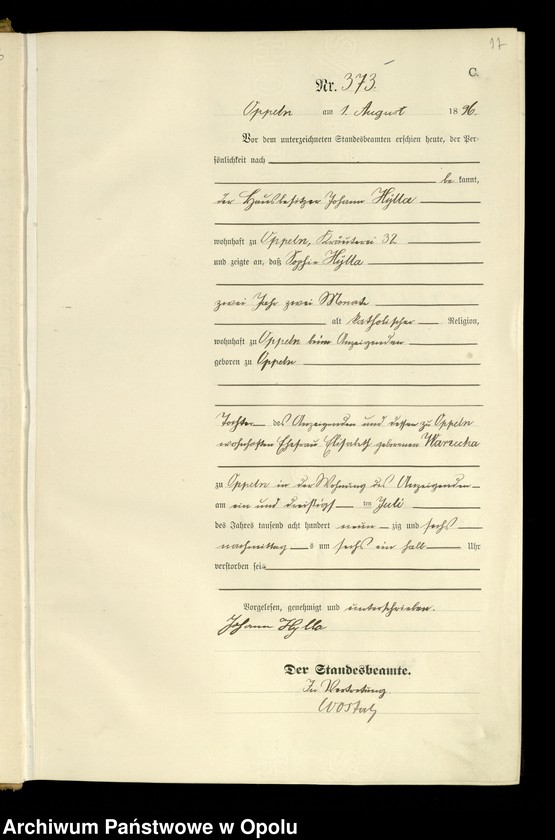 17
C.
Nr. 373.
Oppeln am 1. August 1896.
Vor dem unterzeichneten Standesbeamten erschien heute, der Per-
sönlichkeit nach
be kannt,
der Hausbesitzer Johann Hylla
wohnhaft zu Oppeln, Kräuterei 32
und zeigte an, daß Sophie Hylla
zwei Jahr zwei Monate
alt katholischer Religion,
wohnhaft zu Oppeln beim Anzeigenden
geboren zu Oppeln
Tochter des Anzeigenden und dessen zu Oppeln
wohnhaften Ehefrau Elisabeth geborenen Warzecha
zu Oppeln in der Wohnung des Anzeigenden
am ein und dreißigsten Juli
des Jahres tausend acht hundert neun zig und sechs
nachmittags um sechs ein halb Uhr
verstorben sei
Vorgelesen, genehmigt und unterschrieben.
Johann Hylla
Der Standesbeamte.
In Vertretung
Archiwum Państwowe w Opolu